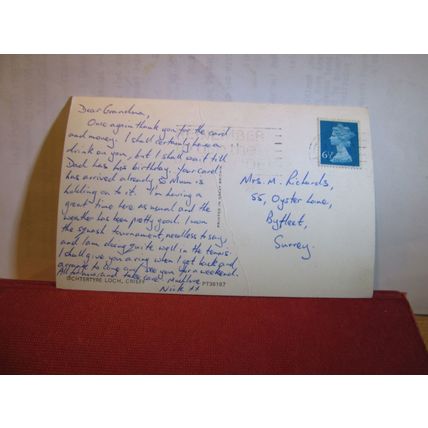 Dear Grandma,
Once again thank you for the card
and money. I shall certainly have a
drink on you, but I shall wait till
Dad has his birthday. Your card
has arrived already & Mum is
holding on to it. I'm having a
great time here as usual and the
weather has been pretty good. I won
the squash tournament, needless to say,
and I am doing quite well in the tennis
I shall give you a ring when I get back and
arrange to come and see you for a weekend.
All take care. Much love
Nick xx
OCHTERTYRE LOCH, CRIEFF PT36197
PRINTED IN GREAT BRITAIN
MBER
the
6½P
Mrs. M. Richards,
55, Oyster Lane,
Byfleet,
Surrey.